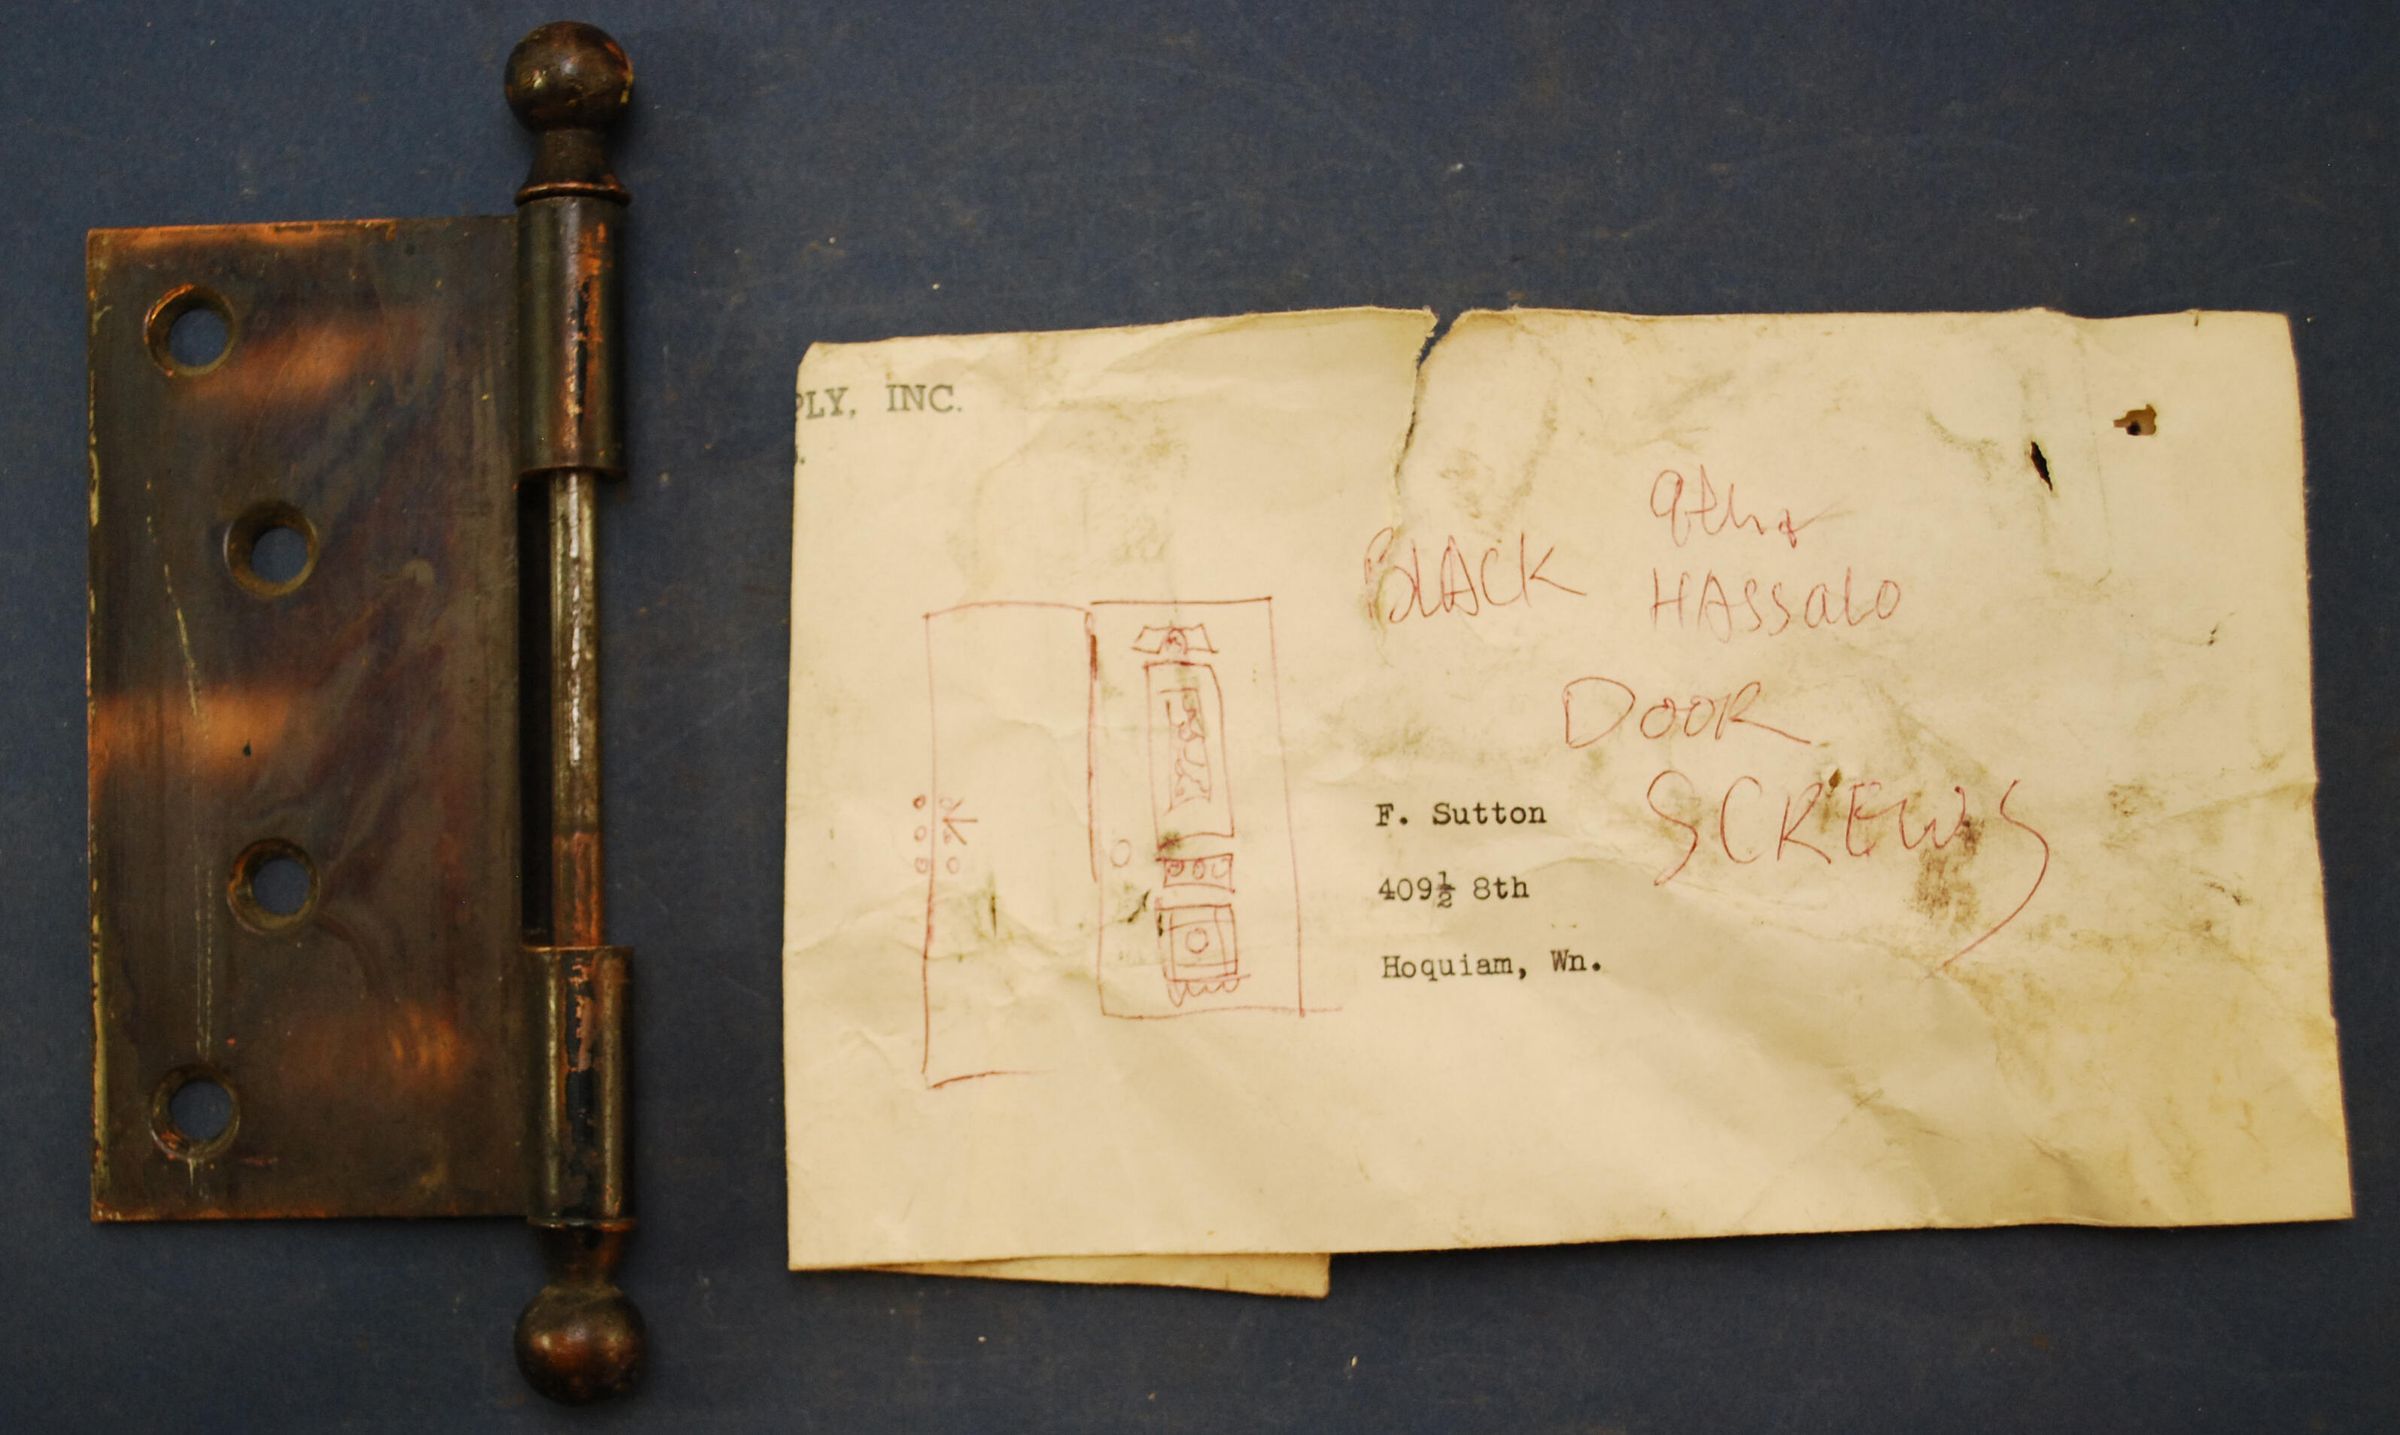 PLY, INC.
9th &
BLACK HASSALO
DOOR
SCREWS
F. Sutton
409½ 8th
Hoquiam, Wn.